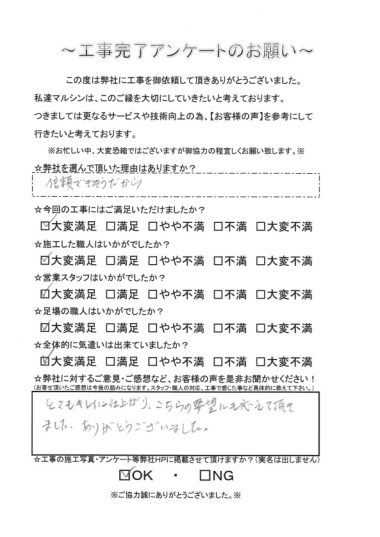 ～工事完了アンケートのお願い～
この度は弊社に工事を御依頼して頂きありがとうございました。
私達マルシンは、このご縁を大切にしていきたいと考えております。
つきましては更なるサービスや技術向上の為、【お客様の声】を参考にして
行きたいと考えております。
※お忙しい中、大変恐縮ではございますが御協力の程宜しくお願い致します。※
☆弊社を選んで頂いた理由はありますか？
信頼できそうだから
☆今回の工事にはご満足いただけましたか？
☑大変満足 □満足 □やや不満 □不満 □大変不満
☆施工した職人はいかがでしたか？
☑大変満足 □満足 □やや不満 □不満 □大変不満
☆営業スタッフはいかがでしたか？
☑大変満足 □満足 □やや不満 □不満 □大変不満
☆足場の職人はいかがでしたか？
☑大変満足 □満足 □やや不満 □不満 □大変不満
☆全体的に気遣いは出来ていましたか？
☑大変満足 □満足 □やや不満 □不満 □大変不満
☆弊社に対するご意見・ご感想など、お客様の声を是非お聞かせください！
(お寄せ頂いたご感想は今後の励みになります。スタッフ・職人の対応、工事で感じた事など具体的に教えて下さい。)
とてもキレイに仕上がり、こちらの希望にも応えて頂き
ました。ありがとうございました。
☆工事の施工写真・アンケート等弊社HPに掲載させて頂けますか？(実名は出しません)
☑OK ・ □NG
※ご協力誠にありがとうございました。※